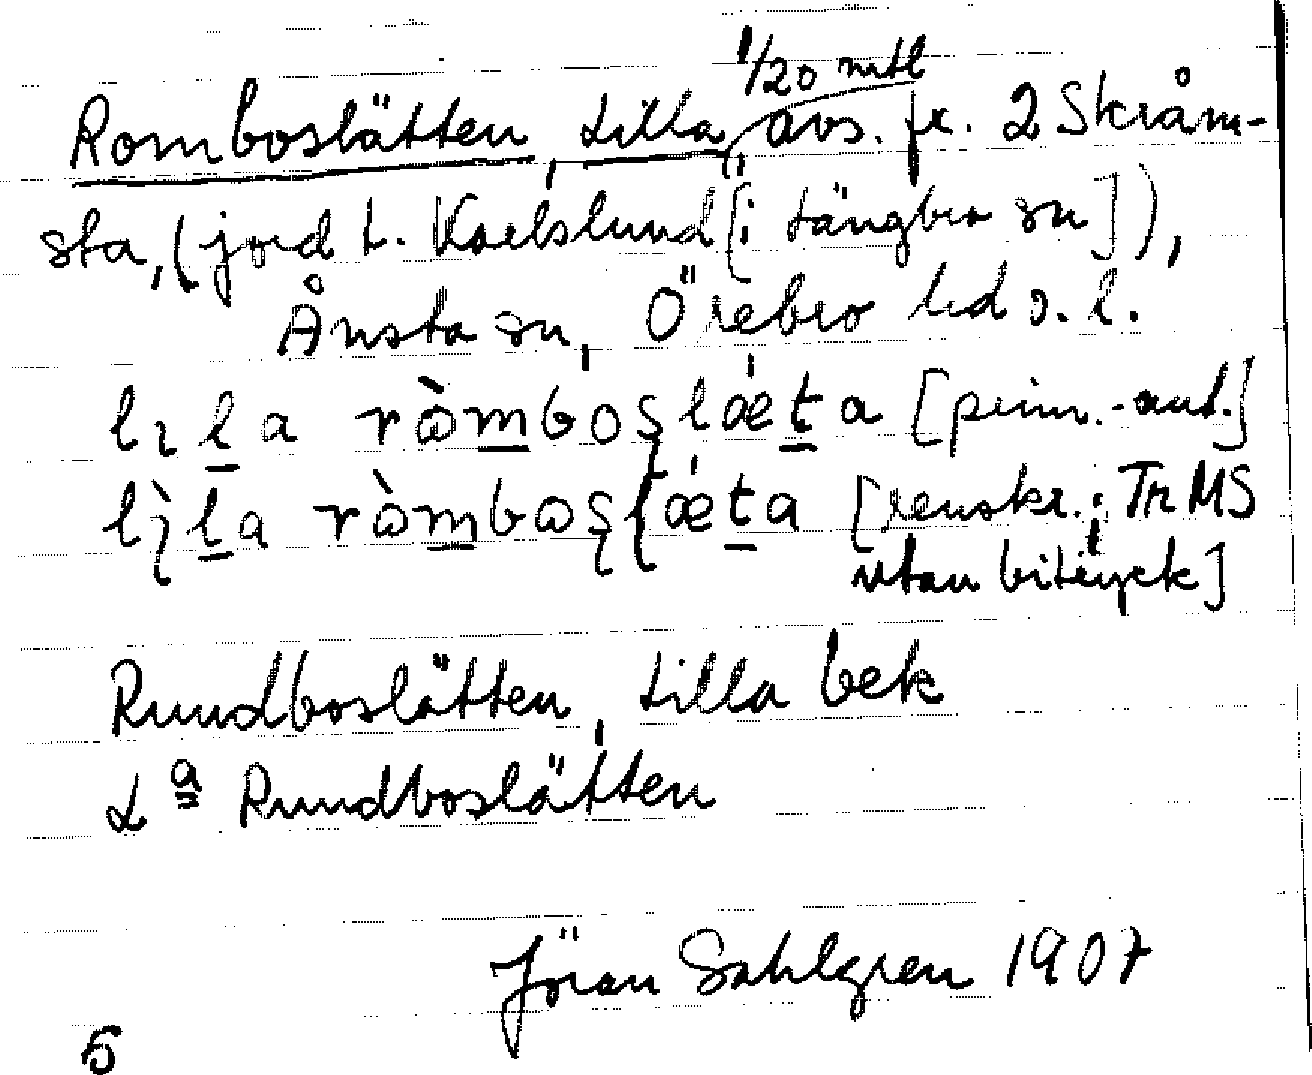 Romboslätten, Lilla, 1/20 mtl avs. fr. 2 Skråm-
sta, (jord t. Karlslund [i Längbro sn]),
Ånsta sn, Örebro hd o. l.
lıla ròmboslǽta [prim.-ant.]
lìla ròmboslǽta [renskr.; Tr MS
utan bitryck]
Rundboslätten, Lilla bek
La Rundboslätten
Jöran Sahlgren 1907
6